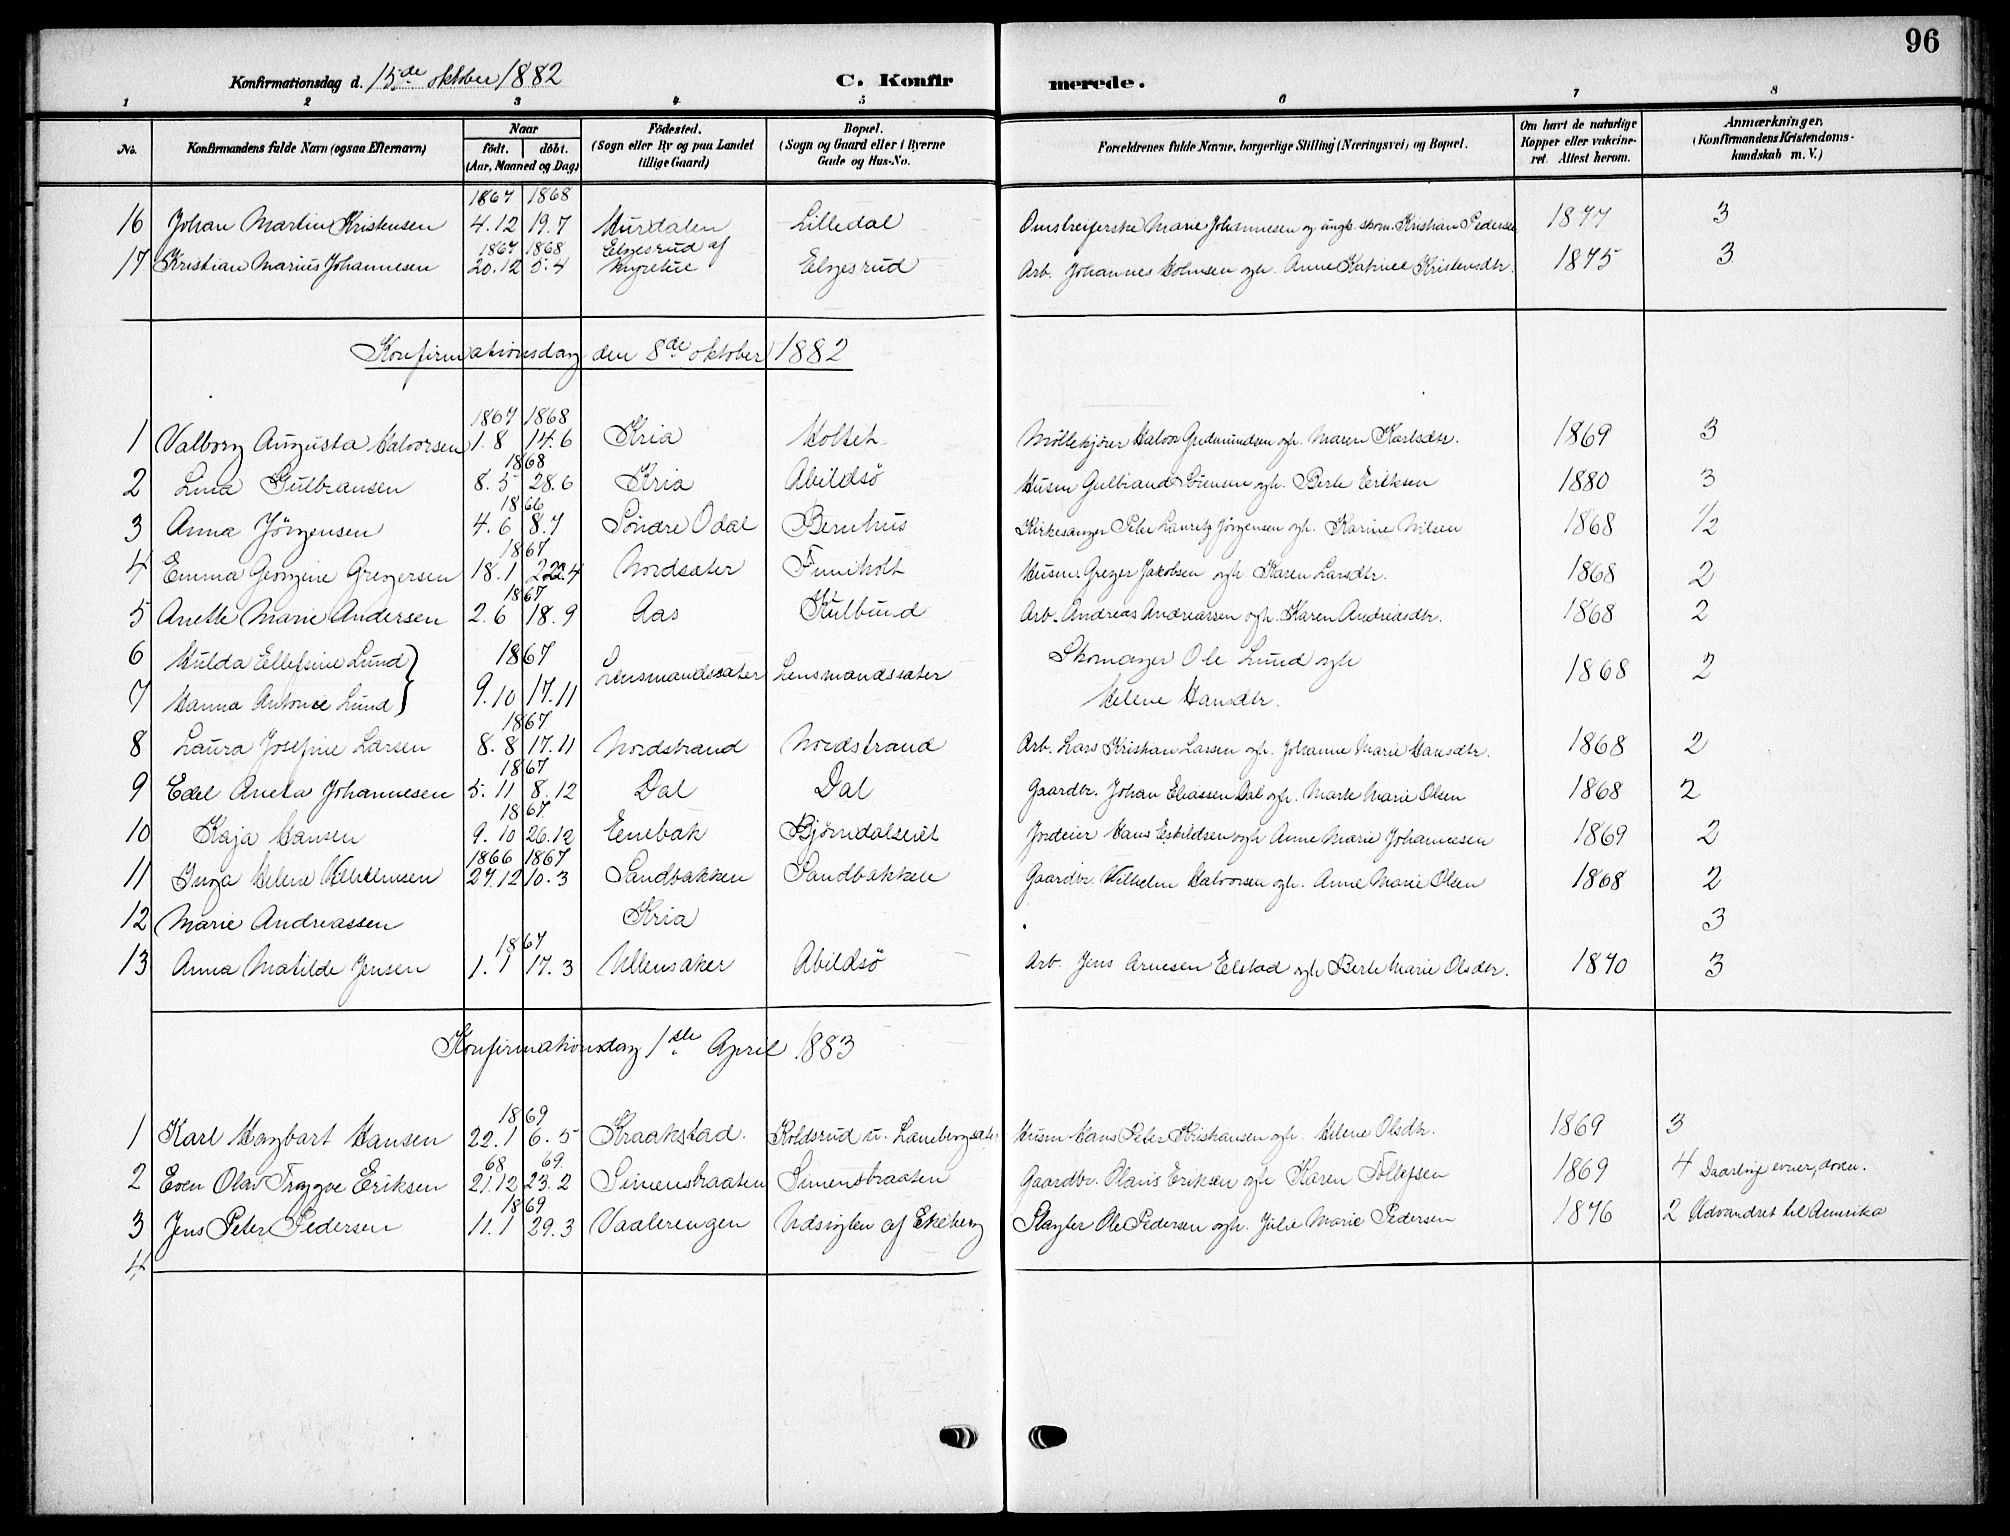 96
Konfirmationsdag d. 15de oktober 1882 C. Konfirmerede.
1 2 3 4 5 6 7 8
No. Konfirmandens fulde Navn (ogsaa Efternavn) Naar født. døbt. (Aar, Maaned og Dag) Fødested. (Sogn eller By og paa Landet tillige Gaard) Bopæl. (Sogn og Gaard eller i Byerne Gade og Hus-No. Forældrenes fulde Navne, borgerlige Stilling (Næringsvei) og Bopæl. Om havt de naturlige Kopper eller vakcineret. Attest herom. Anmærkninger. (Konfirmandens Kristendomskundskab m. V.)
1867 1868
16 Johan Martin Kristensen 4.12 19.7 Hurdalen Lilledal Marie Johannesen og ungk. skom. Kristian Pedersen 1877 3
1867 1868
17 Kristian Marius Johannesen 20.12 5.4 Elgesrud af Elgesrud Arb. Johannes Holmsen ogh. Anne Katrine Kristensdtr. 1875 3
Konfirmationsdag den 8de oktober 1882
1867 1868
1 Valborg Augusta Halvorsen 1.8 14.6 Kria Holtet Møllekjører Halvor Gudmundsen ogh. Maren Karlsdtr. 1869 3
1868
2 Lina Gulbransen 8.5 28.6 Kria Abildsö Husm Gulbrand Sörensen ogh. Berte Eriksen 1880 3
1866
3 Anna Jörgensen 4.6 8.7 Söndre Odal Bernhus Kirkesanger Peter Lauritz Jörgensen ogh. Karine Nilsen 1868 1/2
1867
4 Emma Georgine Gregersen 18.1 22.4 Nordsæter Funiholt Husm. Greger Jakobsen ogh Karen Larsdtr. 1868 2
1867
5 Anette Marie Andersen 2.6 18.9 Aas Kulbund Arb. Andreas Andreassen ogh. Karen Andreasdtr. 1868 2
6 Hulda Ellefsine Lund 1867 Lensmandssæter Lensmandssæter Skomager Ole Lund ogh 1868 2
7 Hanna Antonie Lund 9.10 17.11 Helene Hansdtr.
1867
8 Laura Josefine Larsen 8.8 17.11 Nordstrand Nordstrand Arb. Lars Kristian Larsen ogh. Johanne Marie Hansdtr. 1868 2
1867
9 Edel Aneta Johannesen 5.11 8.12 Dal Dal Gaardbr. Johan Eliassen Dal ogh. Marte Marie Olsen 1868 2
1867
10 Kaja Hansen 9.10 26.12 Enebak Björndalseiet Jordeier Hans Eskildsen ogh Anne Marie Johannesen 1869 2
1866 1867
11 Inga Helene Vilhelmsen 27.12 10.3 Sandbakken Sandbakken Gaardbr. Vilhelm Halvorsen ogh. Anne Marie Olsen 1868 2
12 Marie Andreassen Kria 3
1867
13 Anna Matilde Jensen 1.1 17.3 Ullensaker Abildsö Arb. Jens Arnesen Elstad ogh Berte Marie Olsdtr. 1870 3
Konfirmationsdag 1ste April 1883
1869
1 Karl Hagbart Hansen 22.1 6.5 Kraakstad. Koldsrud u. Husm Hans Peter Kristiansen ogh. Helene Olsdtr. 1869 3
68 69
2 Even Olav Trygve Eriksen 21.12 23.2 Simensbraaten Simensbraaten Gaardbr. Olaus Eriksen ogh Karen Tollefsen 1869 4 Daarlige evner, doven.
1869
3 Jens Peter Pedersen 11.1 29.3 Vaalerengen Udsigten af Ekeberg Slagter Ole Pedersen ogh. Julie Marie Pedersen 1876 2 Udvandret til Amerika
4